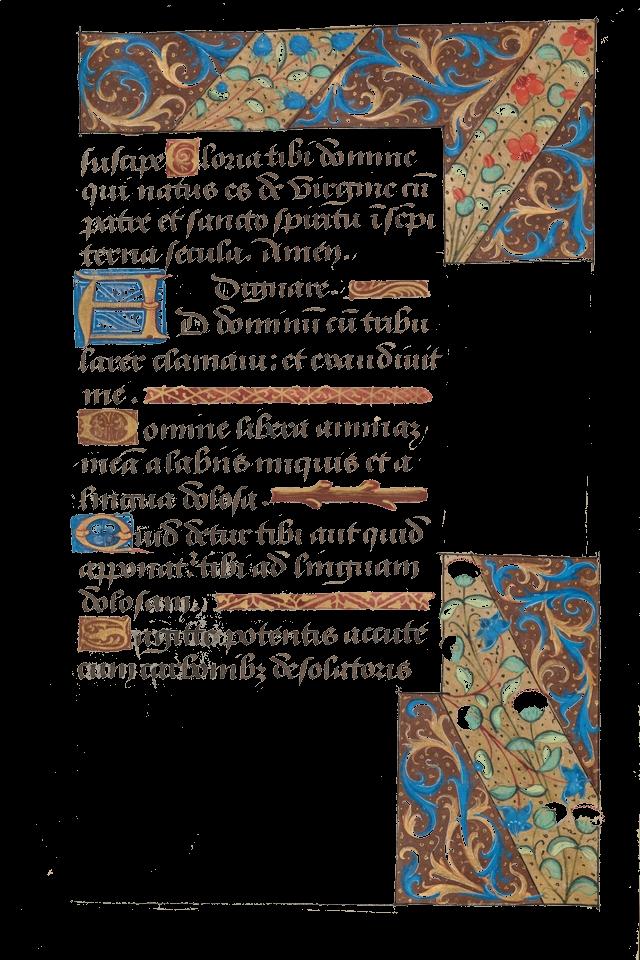 suscipe Gloria tibi domine
qui natus es de virgine cū
patre et sancto spiritu ī sēpi
terna secula. Amen.
Psalmus.
AD dominū cū tribu
larer clamaui: et exaudiuit
me.
Domine libera animaz
meā a labiis iniquis et a
lingua dolosa.
Quid detur tibi aut quid
apponat.ʾ tibi ad linguam
dolosam.
Sagitte potentis acute
cum carbonibz desolatoris